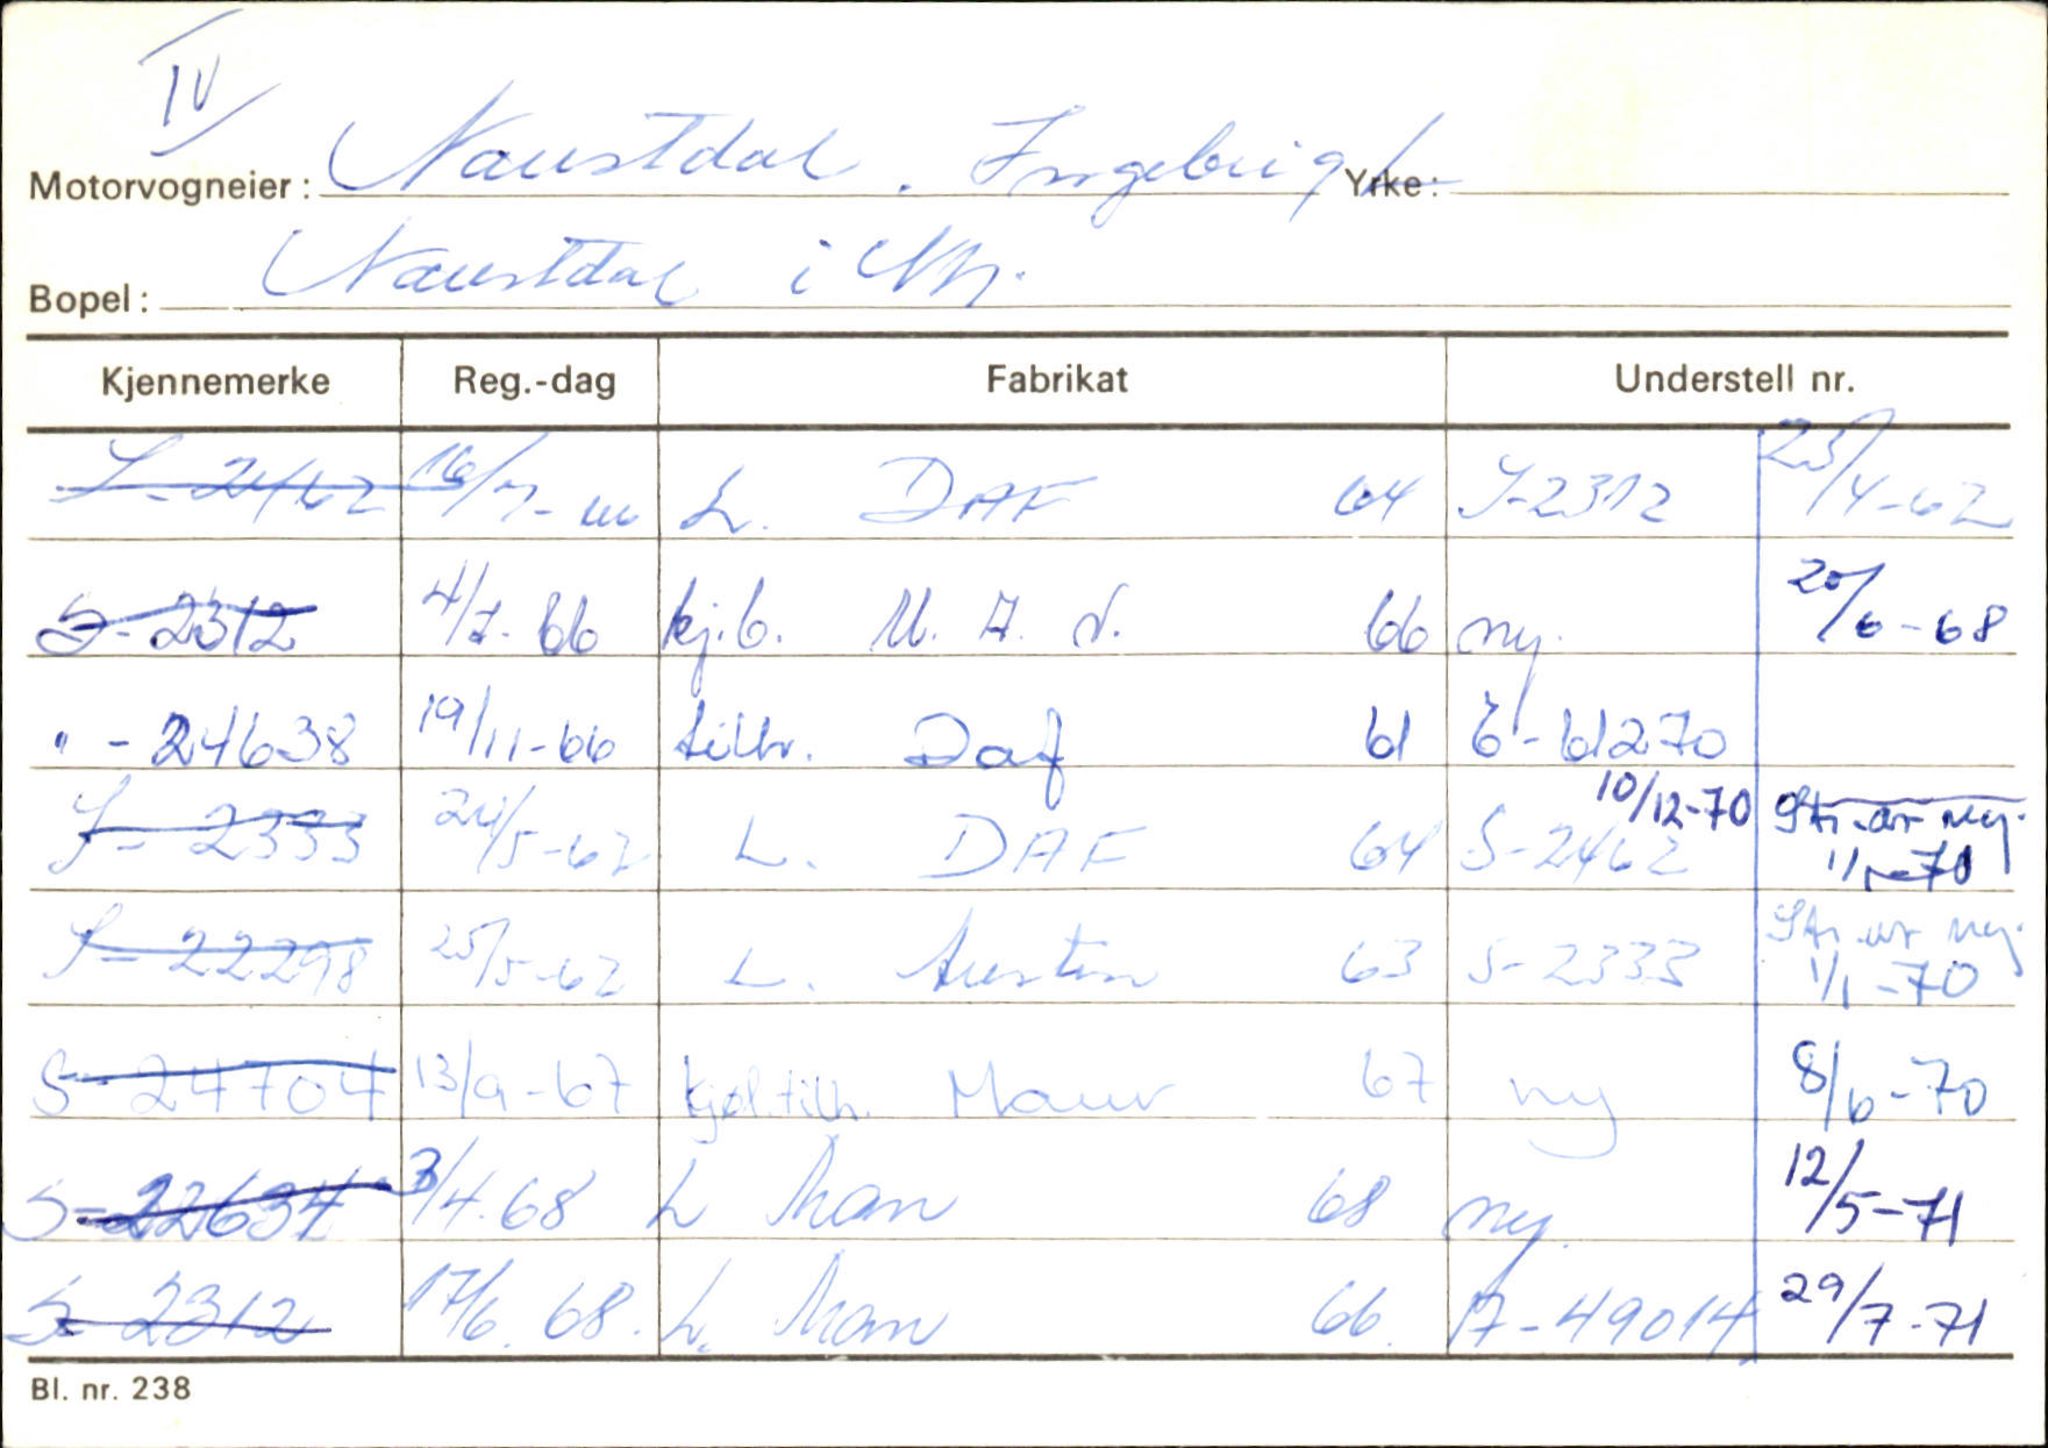 IV
Motorvogneier: Naustdal. Ingebrigt Yrke:
Bopel: Naustdal i
Kjennemerke Reg.-dag Fabrikat Understell nr.
S-2462 16/ L. DAF 64 S-2312 25/4-67
S-2312 4/7-66 kj.b. M. A. N. 66 ny. 20/6-68
" - 24638 19/11-66 tilh. Daf 61 -61270
S-2333 24/5-67 L. DAF 64 S-2462 10/12-70 Str. av reg. 1/1-70
S-22298 25/5-67 L. Austin 63 S-2333 Str. av reg. 1/1-70
S-24704 13/9-67 kjol.tilh. Maur 67 ny 8/6-70
S-22634 3/4.68 L Man 68 ny. 12/5-71
S-2312 17/6.68. L. Man 66. A-49014 29/7-71
Bl. nr. 238